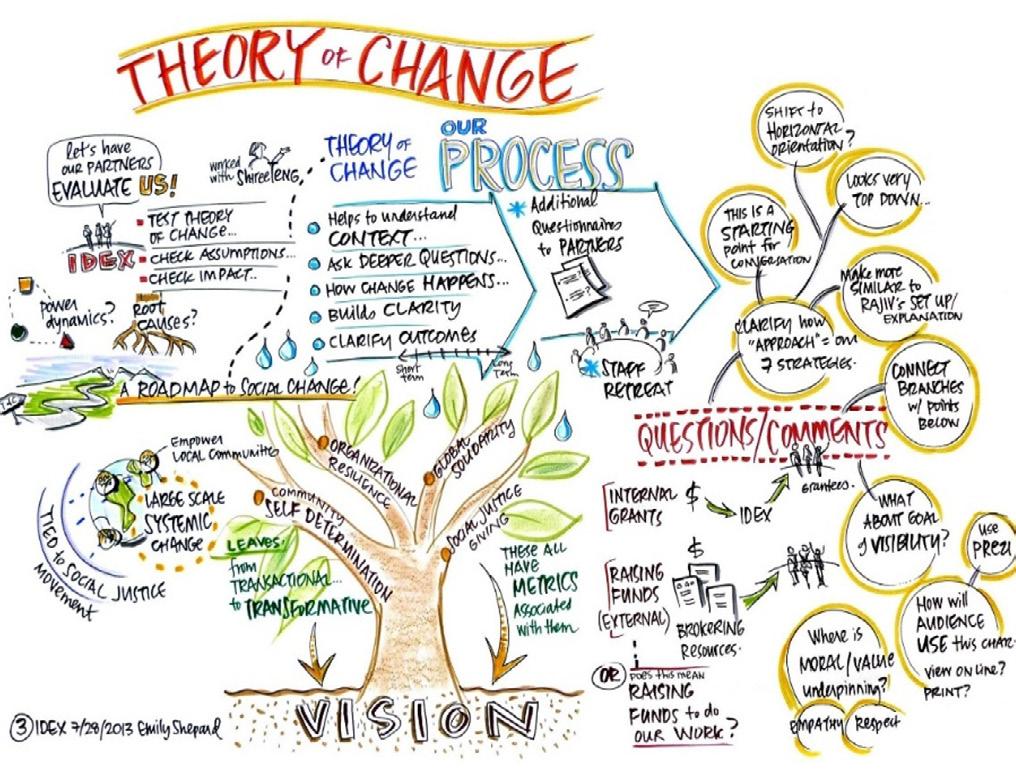 THEORY OF CHANGE
let's have
our PARTNERS
EVALUATE US!
IDEX
TEST THEORY
OF CHANGE...
CHECK ASSUMPTIONS...
CHECK IMPACT...
power
dynamics?
ROOT
CAUSES?
A ROADMAP to SOCIAL CHANGE!
worked
with Shiree TENG
THEORY OF
CHANGE
OUR
PROCESS
Helps to understand
CONTEXT...
ASK DEEPER QUESTIONS...
HOW CHANGE HAPPENS...
BUILDS CLARITY
CLARIFY OUTCOMES
Short
term
Long
term
Additional
Questionnaires
to PARTNERS
STAFF
RETREAT
Empower
LOCAL Communities
LARGE SCALE
SYSTEMIC
CHANGE
TIED to SOCIAL JUSTICE
MOVEMENT
LEAVES:
from
TRANSACTIONAL...
to TRANSFORMATIVE
COMMUNITY
SELF DETERMINATION
ORGANIZATIONAL
RESILIENCE
GLOBAL
SOLIDARITY
SOCIAL JUSTICE
GIVING
THESE ALL
HAVE
METRICS
Associated
with them
VISION
③ IDEX 7/28/2013 Emily Shepard
SHIFT to
HORIZONTAL
ORIENTATION?
LOOKS VERY
TOP DOWN...
THIS IS A
STARTING
point for
CONVERSATION
MAKE more
SIMILAR to
RAJIV'S SET UP/
EXPLANATION
CLARIFY how
"APPROACH" = our
7 STRATEGIES.
CONNECT
BRANCHES
w/ points
BELOW
QUESTIONS/COMMENTS
INTERNAL
GRANTS
$
IDEX
grantees.
RAISING
FUNDS
(EXTERNAL)
$
BROKERING
RESOURCES.
OR
DOES this mean
RAISING
FUNDS to do
OUR WORK?
WHAT
ABOUT GOAL
of VISIBILITY?
USE
PREZI
How will
AUDIENCE
USE this CHART
view on line?
PRINT?
Where is
MORAL/VALUE
underpinning?
EMPATHY
Respect